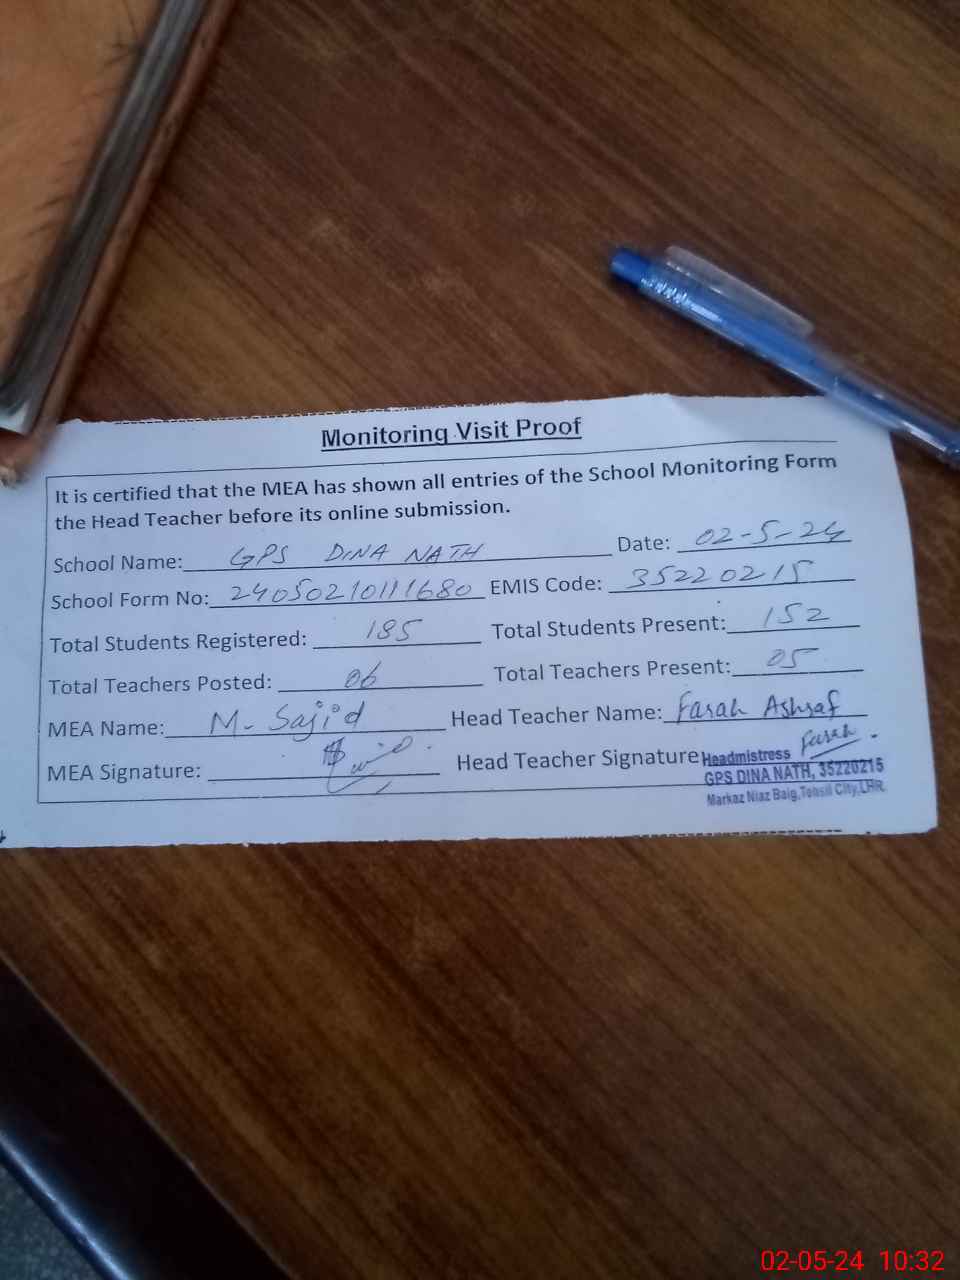 Monitoring Visit Proof
It is certified that the MEA has shown all entries of the School Monitoring Form
the Head Teacher before its online submission.
School Name: GPS DINA NATH Date: 02-5-24
School Form No: 24050210111680 EMIS Code: 35220215
Total Students Registered: 185 Total Students Present: 152
Total Teachers Posted: 06 Total Teachers Present: 05
MEA Name: M- Sajid Head Teacher Name: Farah Ashraf
MEA Signature: Head Teacher Signature Farah
Headmistress
GPS DINA NATH, 35220215
Markaz Niaz Baig, Tehsil City, LHR.
02-05-24 10:32